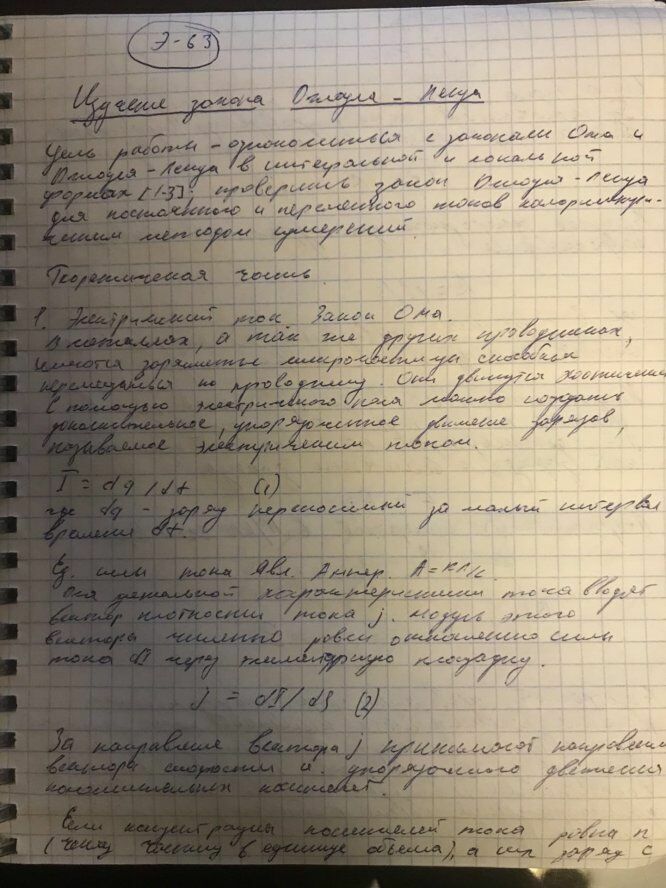 Э-63
Изучение закона Джоуля - Ленца
Цель работы - ознакомиться с законами Ома и
Джоуля-Ленца в интегральной и локальной
формах [1-3]; проверить закон Джоуля-Ленца
для постоянного и переменного токов калориметри-
ческим методом измерений.
Теоретическая часть.
1. Электрический ток. Закон Ома.
В металлах, а так же других проводниках,
имеются заряженные микрочастицы способные
перемещаться по проводнику. Они движутся хаотически
С помощью электрического поля можно создать
дополнительное, упорядоченное движение зарядов,
называемое электрическим током.
I = dq / dt (1)
где dq - заряд переносимый за малый интервал
времени dt.
Ед. силы тока явл. Ампер. А = Кл/с.
Для детальной характеристики тока вводят
вектор плотности тока j. Модуль этого
вектора численно равен отношению силы
тока dI через элементарную площадку.
j = dI / dS (2)
За направление вектора j принимают направление
вектора скорости u упорядочного движения
положительных
Если концентрация носителей тока равна n
(числу частиц в единице объема), а их заряд e